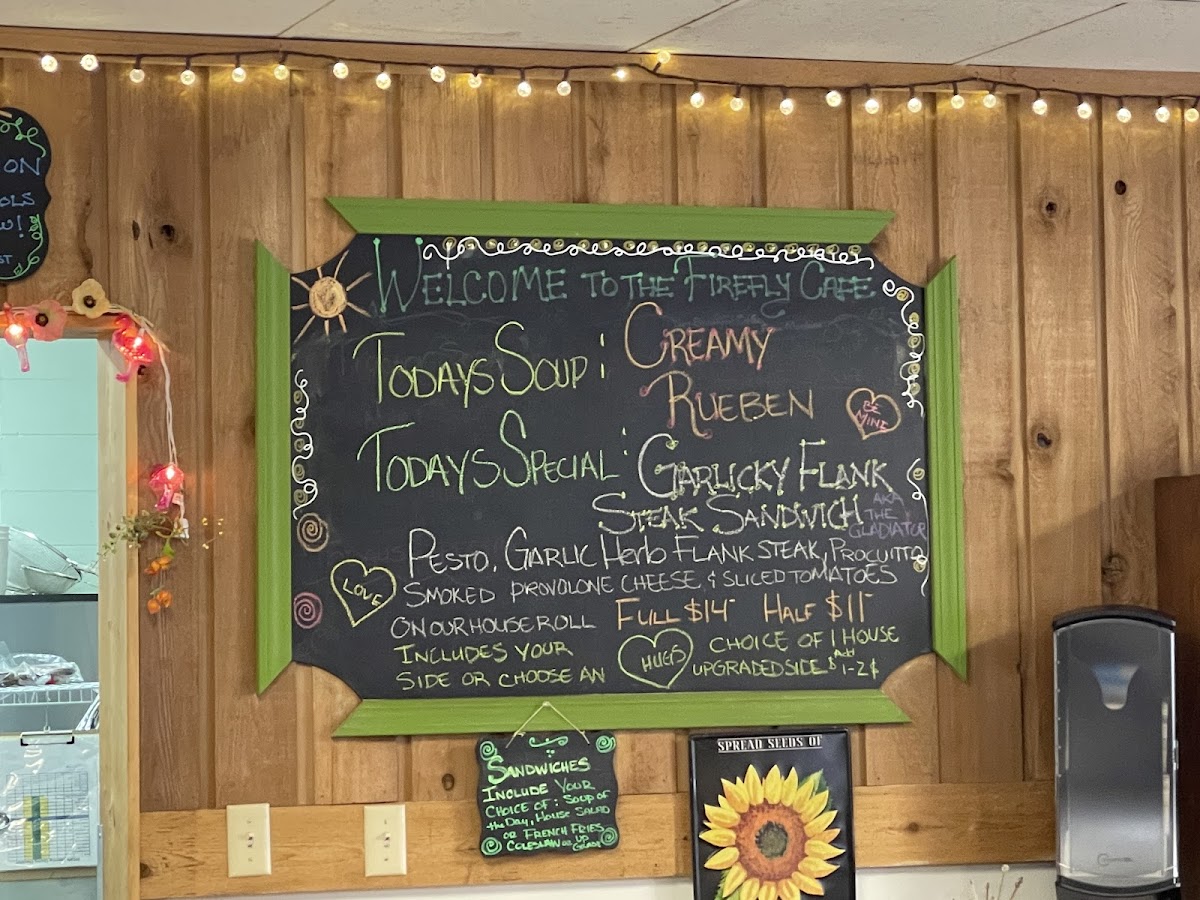 ON
OLS
W!
ST
WELCOME TO THE FIREFLY CAFE
TODAYS SOUP : CREAMY
RUEBEN
BE
MINE
TODAYS SPECIAL : GARLICKY FLANK
STEAK SANDWICH
AKA
THE
GLADIATOR
PESTO, GARLIC HERB FLANK STEAK, PROCUITTO
SMOKED PROVOLONE CHEESE, & SLICED TOMATOES
LOVE
ON OUR HOUSE ROLL FULL $14 HALF $11
INCLUDES YOUR HUGS CHOICE OF 1 HOUSE
SIDE OR CHOOSE AN UPGRADED SIDE Add $1-2$
SANDWICHES
INCLUDE YOUR
CHOICE OF : SOUP OF
the DAY, HOUSE SALAD
OR FRENCH FRIES
COLESLAW OR UP
GRADE
SPREAD SEEDS OF